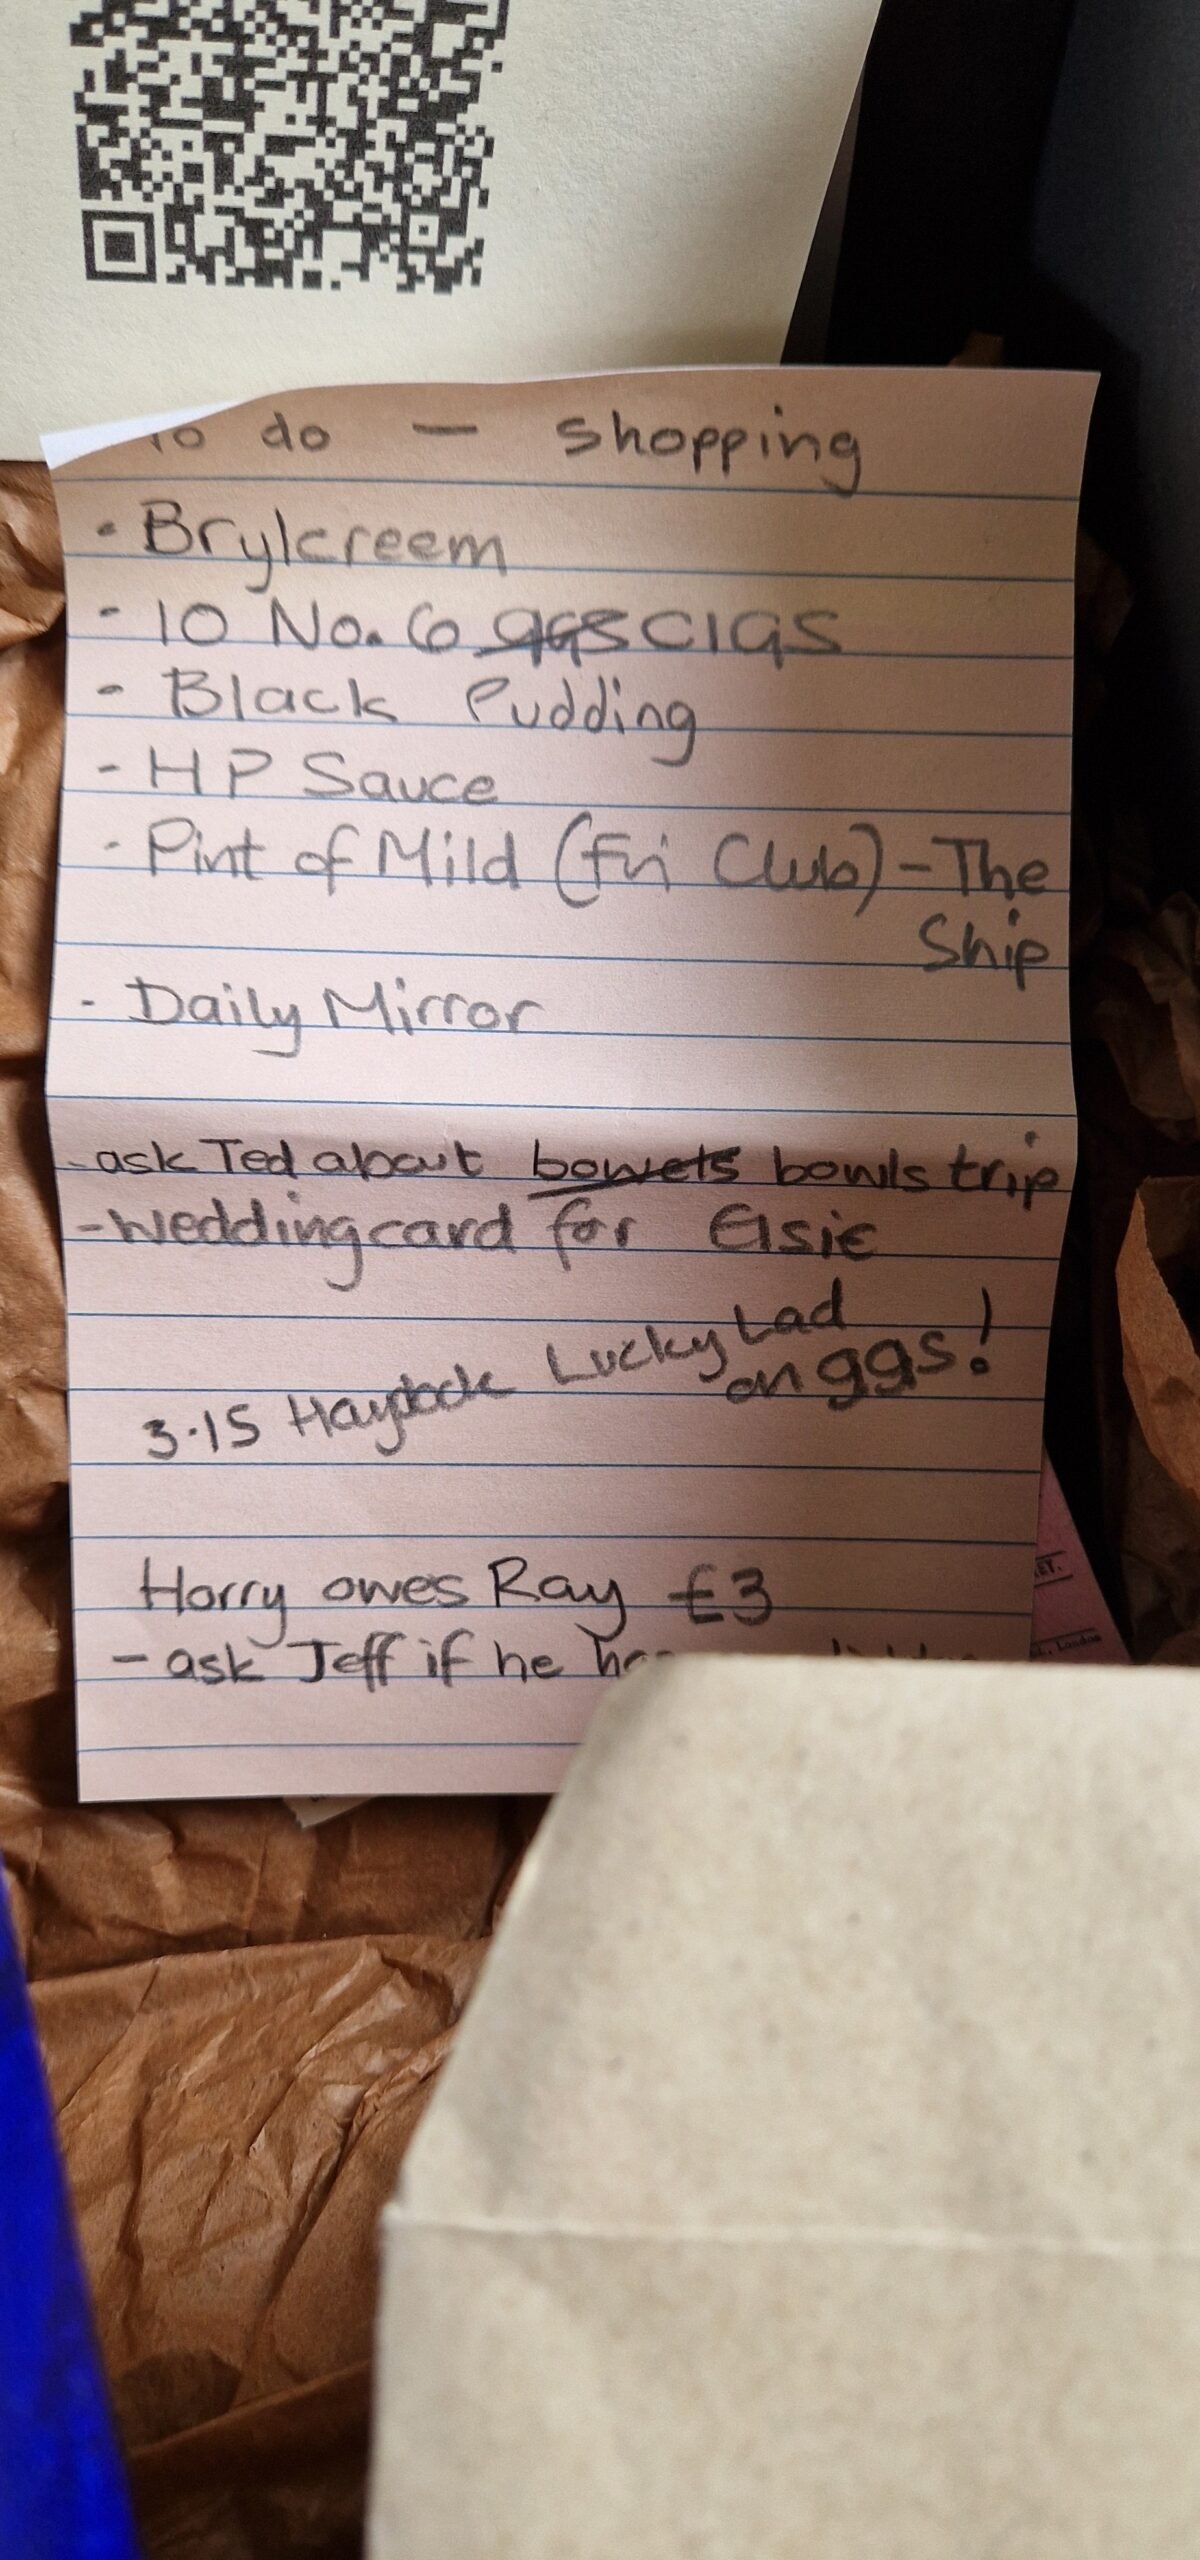 To do — shopping
- Brylcreem
- 10 No. 6 ggs CIGS
- Black Pudding
- HP Sauce
- Pint of Mild (Fri Club) - The
Ship
- Daily Mirror
- ask Ted about bowels bowls trip
- Wedding card for Elsie
3.15 Haydock Lucky Lad
on ggs!
Harry owes Ray £3
- ask Jeff if he
London